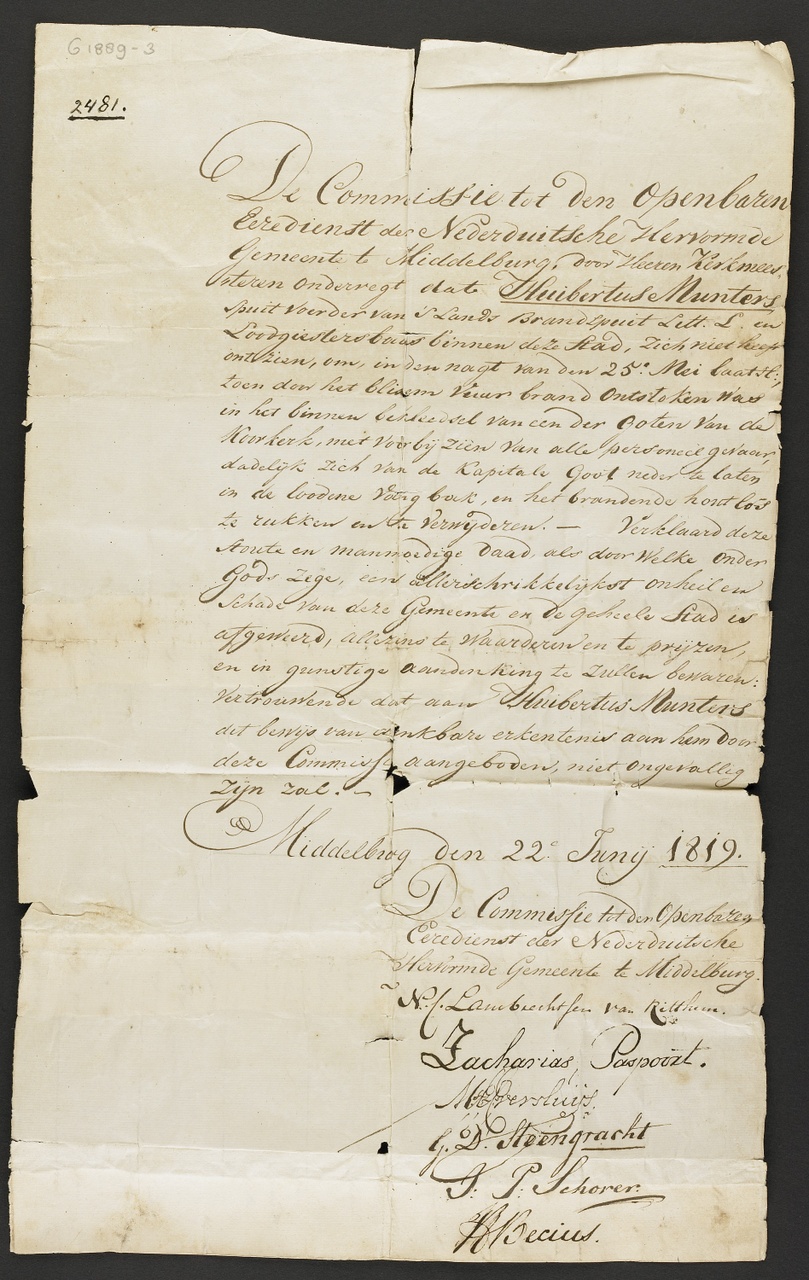 G 1889-3
2481.
De Commissie tot den Openbaren
Eeredienst der Nederduitsche Hervormde
Gemeente te Middelburg, door Heeren Kerkmees,
steren onderregt dat Huibertus Munters
spuit voerder van 's Lands Brandspuit Lett. L. en
Loodgietersbaas binnen deze Stad, zich niet heeft
ontzien, om, in den nagt van den 25e Mei laatstl.,
toen door het blixem vuur brand ontstoken was
in het binnen bekleedsel van een der Goten van de
Koorkerk, met voorbij zien van alle personeel gevaar,
dadelijk zich van de Kapitale Goot neder te laten
in de loodene vang bak, en het brandende hout los
te rukken en te verwijderen. — Verklaard deze
stoute en manmoedige daad, als door welke onder
Gods zege, een allerschrikkelijkst onheil en
schade van deze Gemeente en de geheele Stad is
afgeweerd, allezins te waarderen en te prijzen,
en in gunstige aandenking te zullen bewaren:
Vertrouwende dat aan Huibertus Munters
dit bewijs van dankbare erkentenis aan hem door
deze Commissie aangeboden, niet ongevallig
zijn zal. —
Middelbrog den 22e Junij 1819.
De Commissie tot den Openbaren
Eeredienst der Nederduitsche
Hervormde Gemeente te Middelburg.
N. C. Lambrechtsen van Ritthem.
Zacharias Paspoort.
Versluijs.
G. D. Steengracht
J. P. Schorer.
Becius.